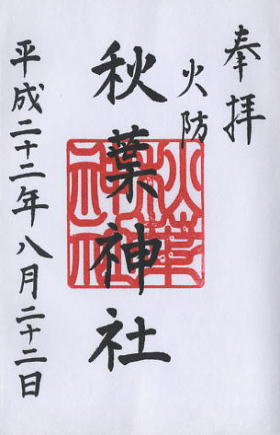 奉拝
火防
秋葉神社
秋葉神社
平成二十二年八月二十二日